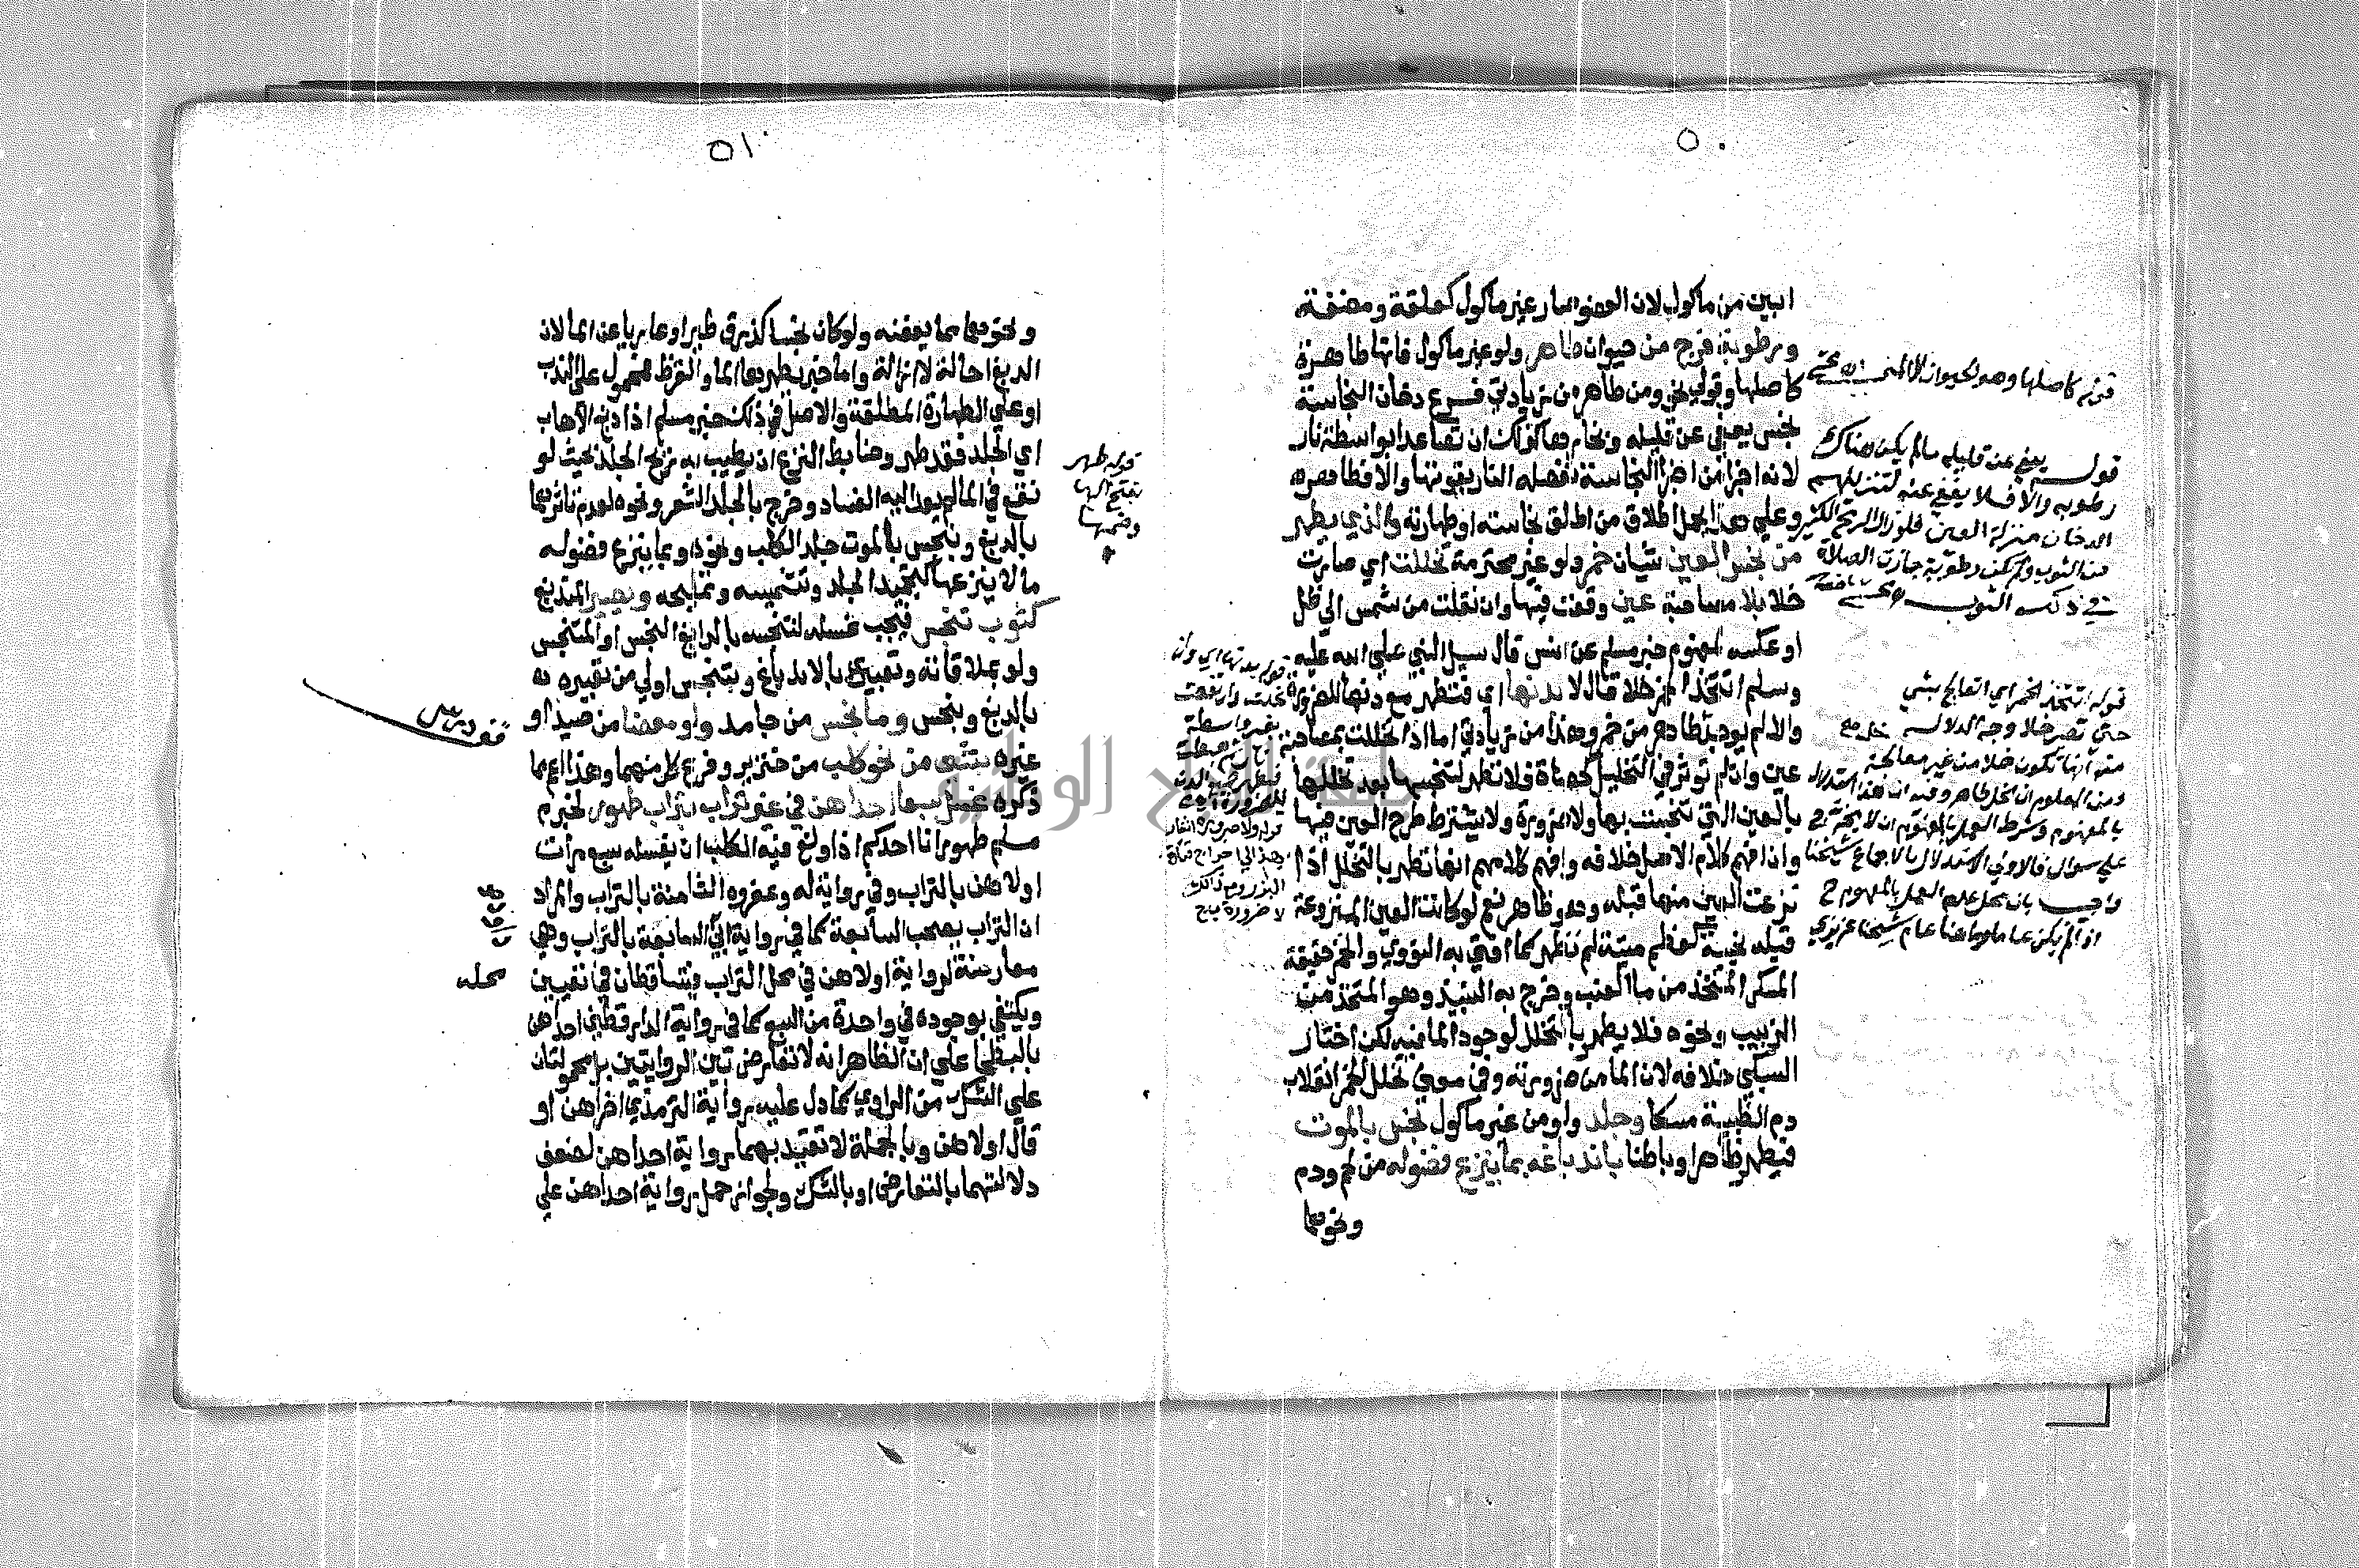 ٥٠
ابين من ماكول لان العضو صار غير ماكول كعلقة ومضغة
ورطوبة فرج من حيوان طاهر ولو غير ماكول فانها طاهرة
كاصلها وقولي نحو ومن طاهر من زيادتي فرع دخان النجاسة
نجس يعفي عن قليله وبخارها كذلك ان تصاعد بواسطة نار
لانه اجزا من اجزا النجاسة تفصله النار بقوتها والا فطاهر
وعلي هذا يحمل اطلاق من اطلق نجاسته او طهارته والذي يطهر
من نجس العين شيان خمر ولو غير محترمة تخللت اي صارت
خلا بلا مصاحبة عين وقعت فيها وان نقلت من شمس الي ظل
او عكسه لمفهوم خبر مسلم عن انس قال سيل النبي صلي الله عليه
وسلم اتتخذ الخمر خلا قال لا بدنها اي فتطهر مع دنها للضرورة
والا لم يوجد خل طاهر من خمر وهذا من زيادتي اما اذا تخللت بمصاحبة
عين وان لم توثر في التخليل كحصاة فلا تطهر لتنجسها بعد تخللها
بالعين التي تنجست بها ولا ضرورة ولا يشترط طرح العين فيها
وان افهم كلام الاصل خلافه وافهم كلامهم انها تطهر بالتخلل اذا
نزعت العين منها قبله وهو ظاهر نعم لو كانت العين المنزوعة
قبله نجسة كعظم ميتة لم تطهر كما افتي به النووي والخمر حقيقة
المسكر المتخذ من ماالعنب وخرج به النبيذ وهو المتخذ من
الزبيب ونحوه فلا يطهر بالتخلل لوجود الما فيه لكن اختار
السبكي خلافه لان الما من ضرورته وفي معني تخلل الخمر انقلاب
دم الظبية مسكا وجلد ولو من غير ماكول نجس بالموت
فيطهر ظاهرا وباطنا باندباغه بما ينزع فضوله من لحم ودم
ونحوهما
قوله كاصلها وهو الحيوان
قوله يعفي عن قليله ما لم يكن هناك
رطوبه والا فلا يعفي عنه لتنزيلهم
الدخان منزلة العين فلو زال الريح الكثير
من الثوب ولم يكن رطوبة جازت الصلاة
في ذلك الثوب
قوله اتتخذ الخمر اي اتعالج بشي
حتي تصير خلا وجه الدلالة
منه انها تكون خلا من غير معالجة
ومن المعلوم ان الخل طاهر وفيه ان هذا استدلال
بالمفهوم وشرط العمل بالمفهوم ان لا يخرج
علي سوال فالاولي الاستدلال بالاجماع شيخنا
واجيب بان محل عدم العمل بالمفهوم
اذا لم يكن عاما وما هنا عام شيخنا عزيزي
٥١
ونحوهما مما يعفنه ولو كان نجسا كذرق طير او عاريا عن الما لان
الدبغ احالة لا ازالة واما خبر يطهرها الما والقرظ فمحمول علي الندب
او علي الطهارة المطلقة والاصل في ذلك خبر مسلم اذا دبغ الاهاب
اي الجلد فقد طهر وضابط النزع ان يطيب به ريح الجلد بحيث لو
نقع في الما لم يعد اليه الفساد وخرج بالجلد الشعر ونحوه لعدم تاثرهما
بالدبغ وبنجس بالموت جلد الكلب ونحوه وبما ينزع فضوله
ما لا ينزعها كتجميد الجلد وتشميسه وتمليحه ويصير المندبغ
كثوب تنجس فيجب غسله لتنجسه بالدابغ النجس او المتنجس
ولو بملاقاته وتعبيري بالاندباغ وبتنجس اولي من تعبيره
بالدبغ وبنجس وما نجس من جامد ولو بعضا من صيد او
غيره بشي من نحو كلب من خنزير وفرع كل منهما وهذا اعم مما
ذكره غسل سبعا احداهن في غير تراب بتراب طهور لخبر
مسلم طهور انا احدكم اذا ولغ فيه الكلب ان يغسله سبع مرات
اولاهن بالتراب وفي رواية له وعفروه الثامنة بالتراب والمراد
ان التراب يصحب السابعة كما في رواية ابي داود السابعة بالتراب وهي
معارضة لرواية اولاهن في محل التراب فيتساقطان في تعيين محله
ويكتفي بوجوده في واحدة من السبع كما في رواية الدارقطني احداهن
بالبطحا علي ان الظاهر انه لا تعارض بين الروايتين بل محمولتان
علي الشك من الراوي كما دل عليه رواية الترمذي اخراهن او
قال اولاهن وبالجملة لا تقيد بهما رواية احداهن لضعف
دلالتهما بالتعارض او بالشك ولجواز حمل رواية احداهن علي
قوله طهر
بفتح الها
وضمها